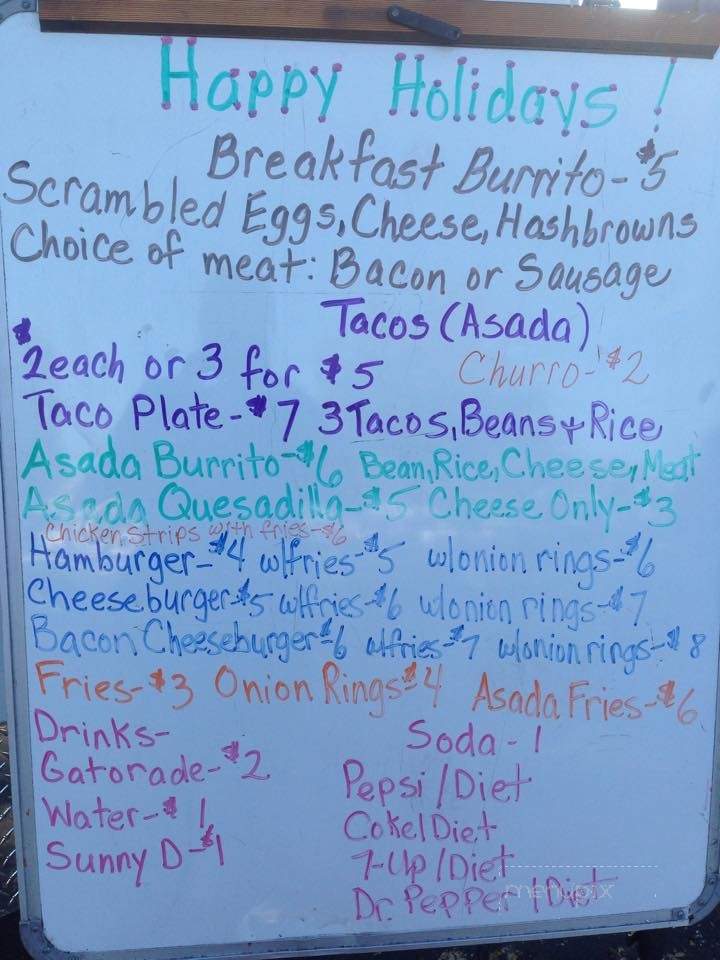 Happy Holidays!
Breakfast Burrito-$5
Scrambled Eggs, Cheese, Hashbrowns
Choice of meat: Bacon or Sausage
Tacos (Asada)
$2each or 3 for $5 Churro-$2
Taco Plate-$7 3 Tacos, Beans + Rice
Asada Burrito-$6 Bean, Rice, Cheese, Meat
Asada Quesadilla-$5 Cheese Only-$3
Chicken Strips with fries-$6
Hamburger-$4 w/fries-$5 w/onion rings-$6
Cheeseburger-$5 w/fries-$6 w/onion rings-$7
Bacon Cheeseburger-$6 w/fries-$7 w/onion rings-$8
Fries-$3 Onion Rings-$4 Asada Fries-$6
Drinks-
Gatorade-$2
Water-$1
Sunny D-$1
Soda-1
Pepsi/Diet
Coke/Diet
7-Up/Diet
Dr. Pepper/Diet
menupix